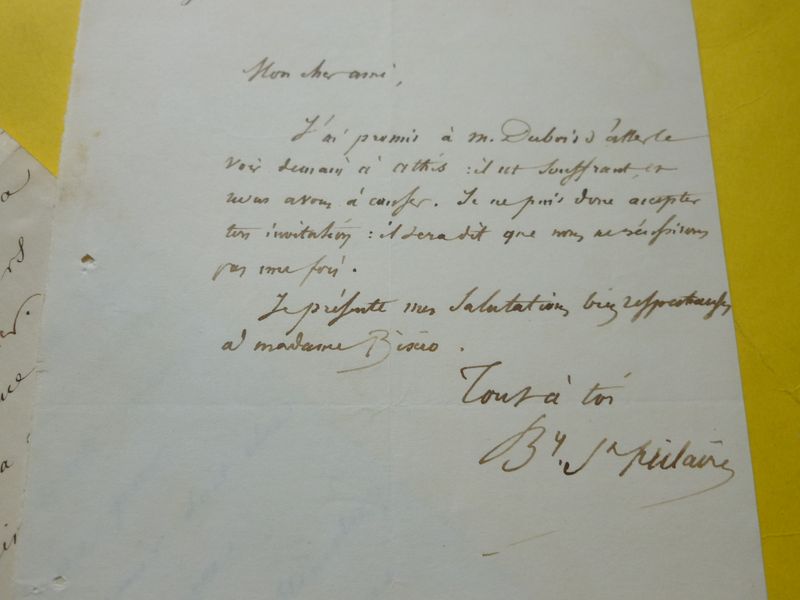 Mon cher ami,
J'ai promis à M. Dubois d'aller le
voir demain à Athis : il est souffrant, et
nous avons à causer. Je ne puis donc accepter
ton invitation : il sera dit que nous ne réussirons
pas une fois.
Je présente mes salutations bien respectueuses
à madame Bixio.
Tout à toi
By. St hilaire